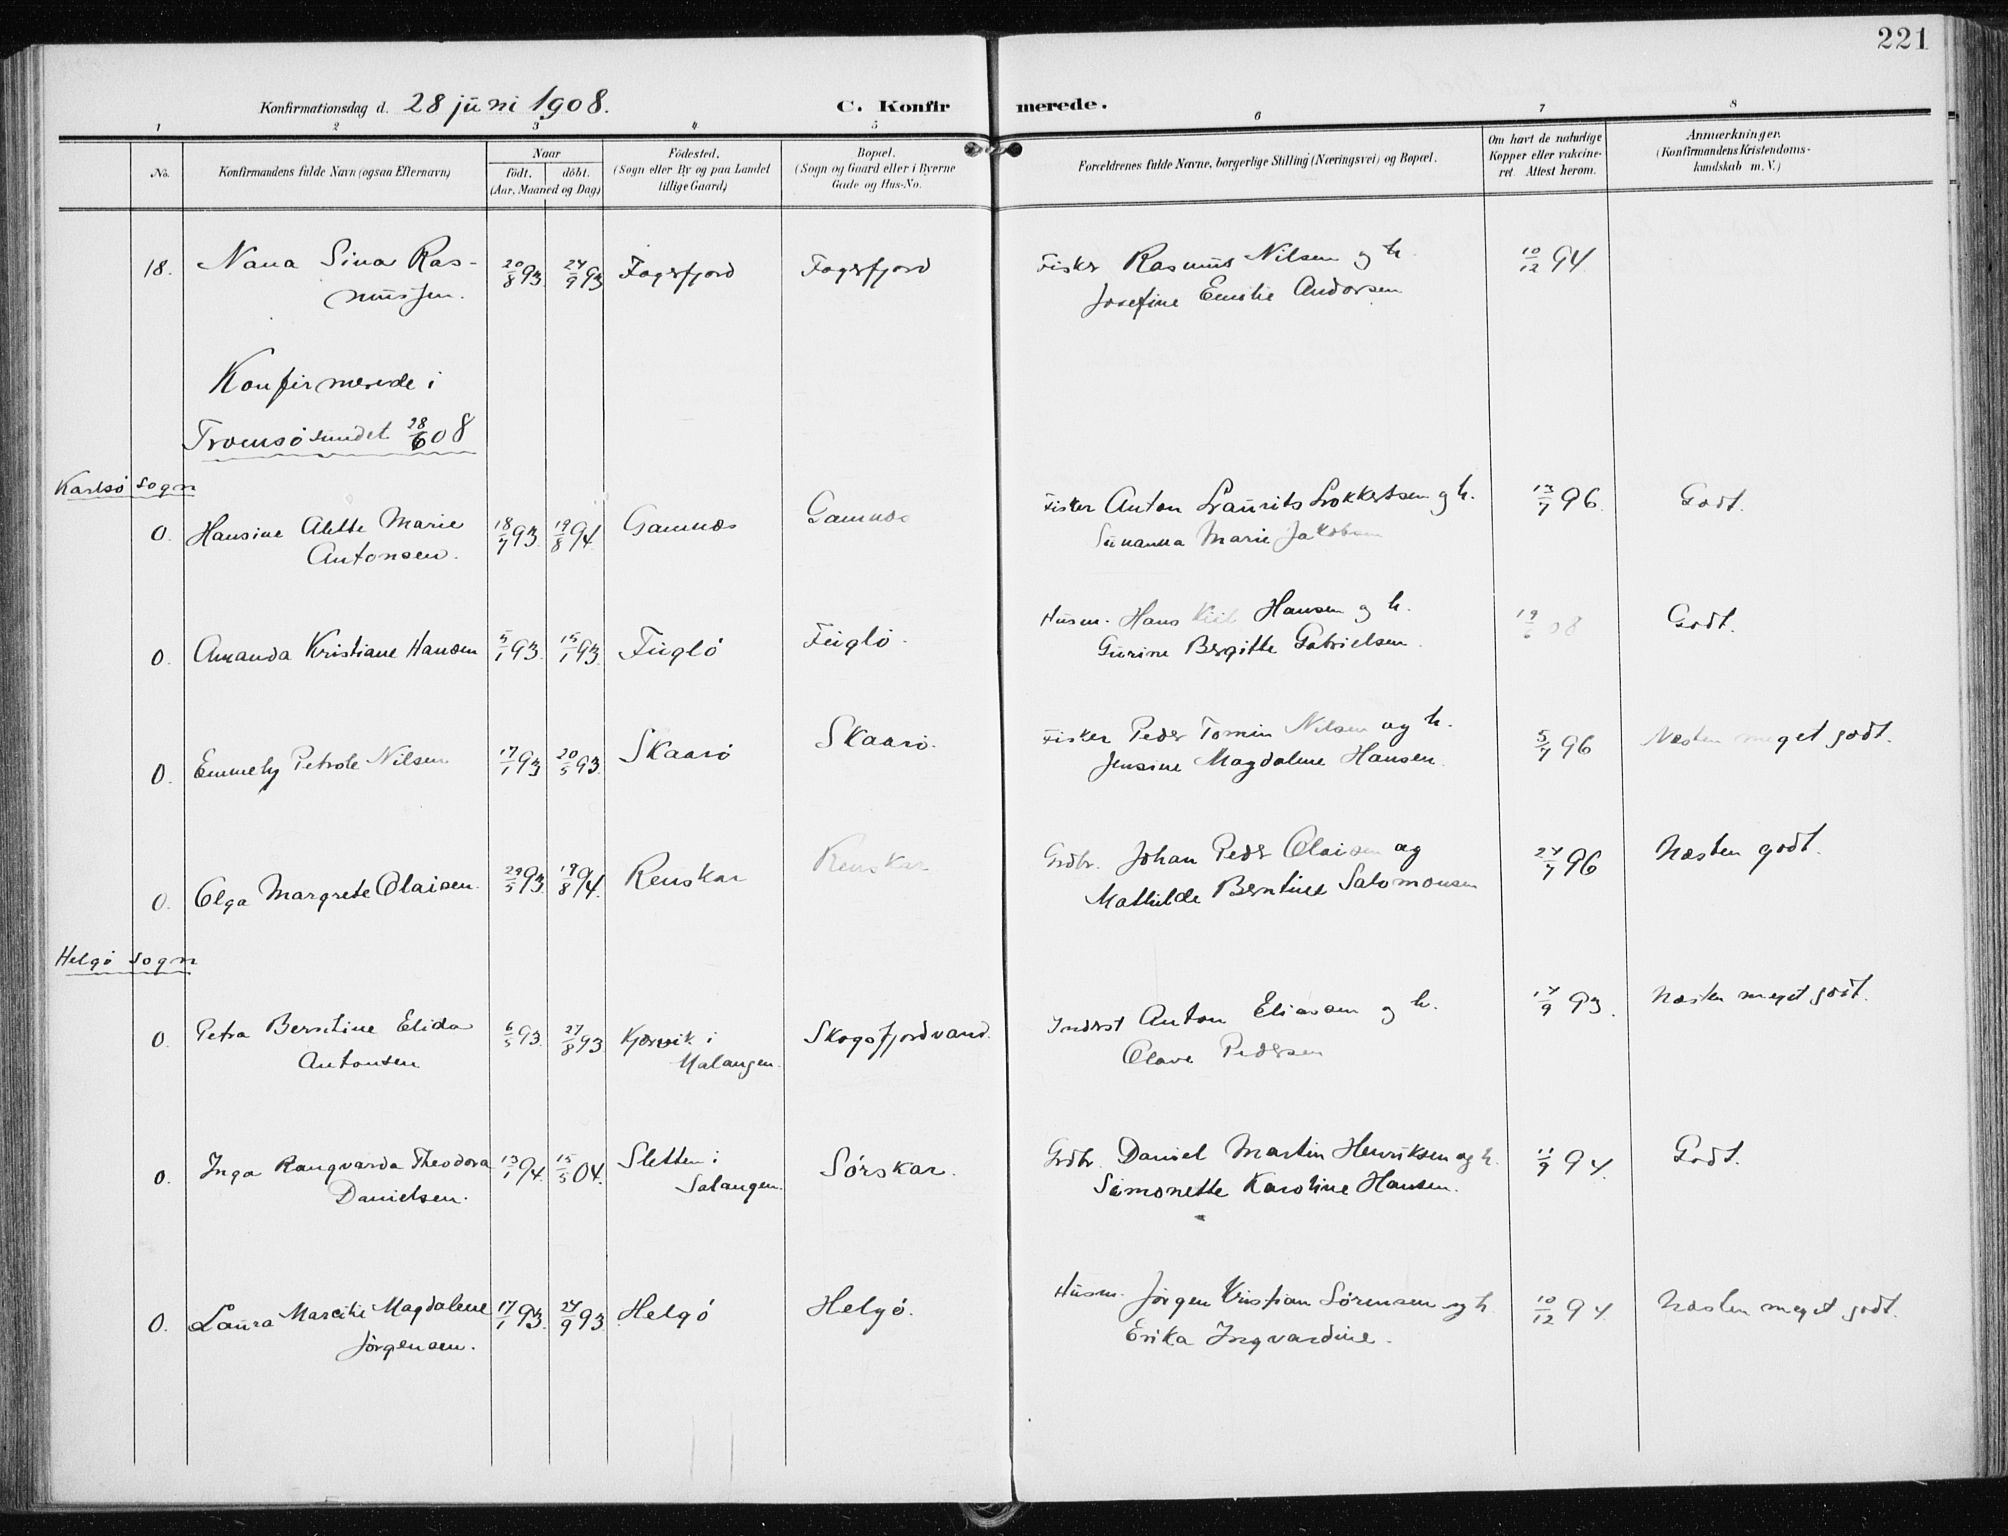 221
Konfirmationsdag d. 28 juni 1908.
C. Konfirmerede.
1 2 3 4 5 6 7 8
No.
Konfirmandens fulde Navn (ogsaa Efternavn)
Naar
født. døbt.
(Aar, Maaned og Dag)
Fødested.
(Sogn eller By og paa Landet
tillige Gaard)
Bopæl.
(Sogn og Gaard eller i Byerne
Gade og Hus-No.
Forældrenes fulde Navne, borgerlige Stilling (Næringsvei) og Bopæl.
Om havt de naturlige
Kopper eller vakcine-
ret. Attest herom.
Anmærkninger.
(Konfirmandens Kristendoms-
kundskab m. V.)
18. Nana Sina Ras- 20/8 93 24/9 93 Fagerfjord Fagerfjord Fisker Rasmus Nilsen og h. 10/12 94
mussen. Josefine Emilie Andorsen
Konfirmerede i
Tromsøsundet 28/6 08
Karlsø Sogn
0. Hansine Alette Marie 18/7 93. 19/8 94. Gamnæs Gamnæs Fisker Anton Laurits Lokkertsen og h. 13/7 96. Godt.
Antonsen. Susanna Marie Jakobsen
0. Amanda Kristiane Hansen 5/1 93. 15/1 93. Fuglø Fuglø. Husm. Hans Kiil Hansen og h. 19/6 08 Godt.
Gurine Bergitte Gabrielsen.
0. Emmely Petrole Nilsen 17/1 93 20/5 93. Skaarø Skaarø. Fisker Peder Tomin Nilsen og h. 5/7 96 Næsten meget godt.
Jensine Magdalene Hansen.
0. Olga Margrete Olaisen. 29/5 93. 19/8 94. Renskar Renskar Grdbr. Johan Peder Olaisen og 24/7 96 Næsten godt.
Mathilde Berntine Salomonsen
Helgø Sogn
0. Petra Berntine Elida 6/5 93. 27/8 93 Kjervik i Skogsfjordvand. Inderst Anton Eliassen og h. 14/9 93. Næsten meget godt.
Antonsen Malangen. Olave Pedersen
0. Inga Rangvarda Theodora 13/1 94. 15/5 04. Sletten i Sørskar. Grdbr. Daniel Martin Henriksen og h. 11/9 94. Godt.
Danielsen. Salangen. Simonette Karoline Hansen.
0. Laura Marcilie Magdalene 17/1 93. 24/9 93 Helgø Helgø. Husm. Jørgen Kristian Sørensen og h. 10/12 94. Næsten meget godt.
Jørgensen. Erika Ingvardine.